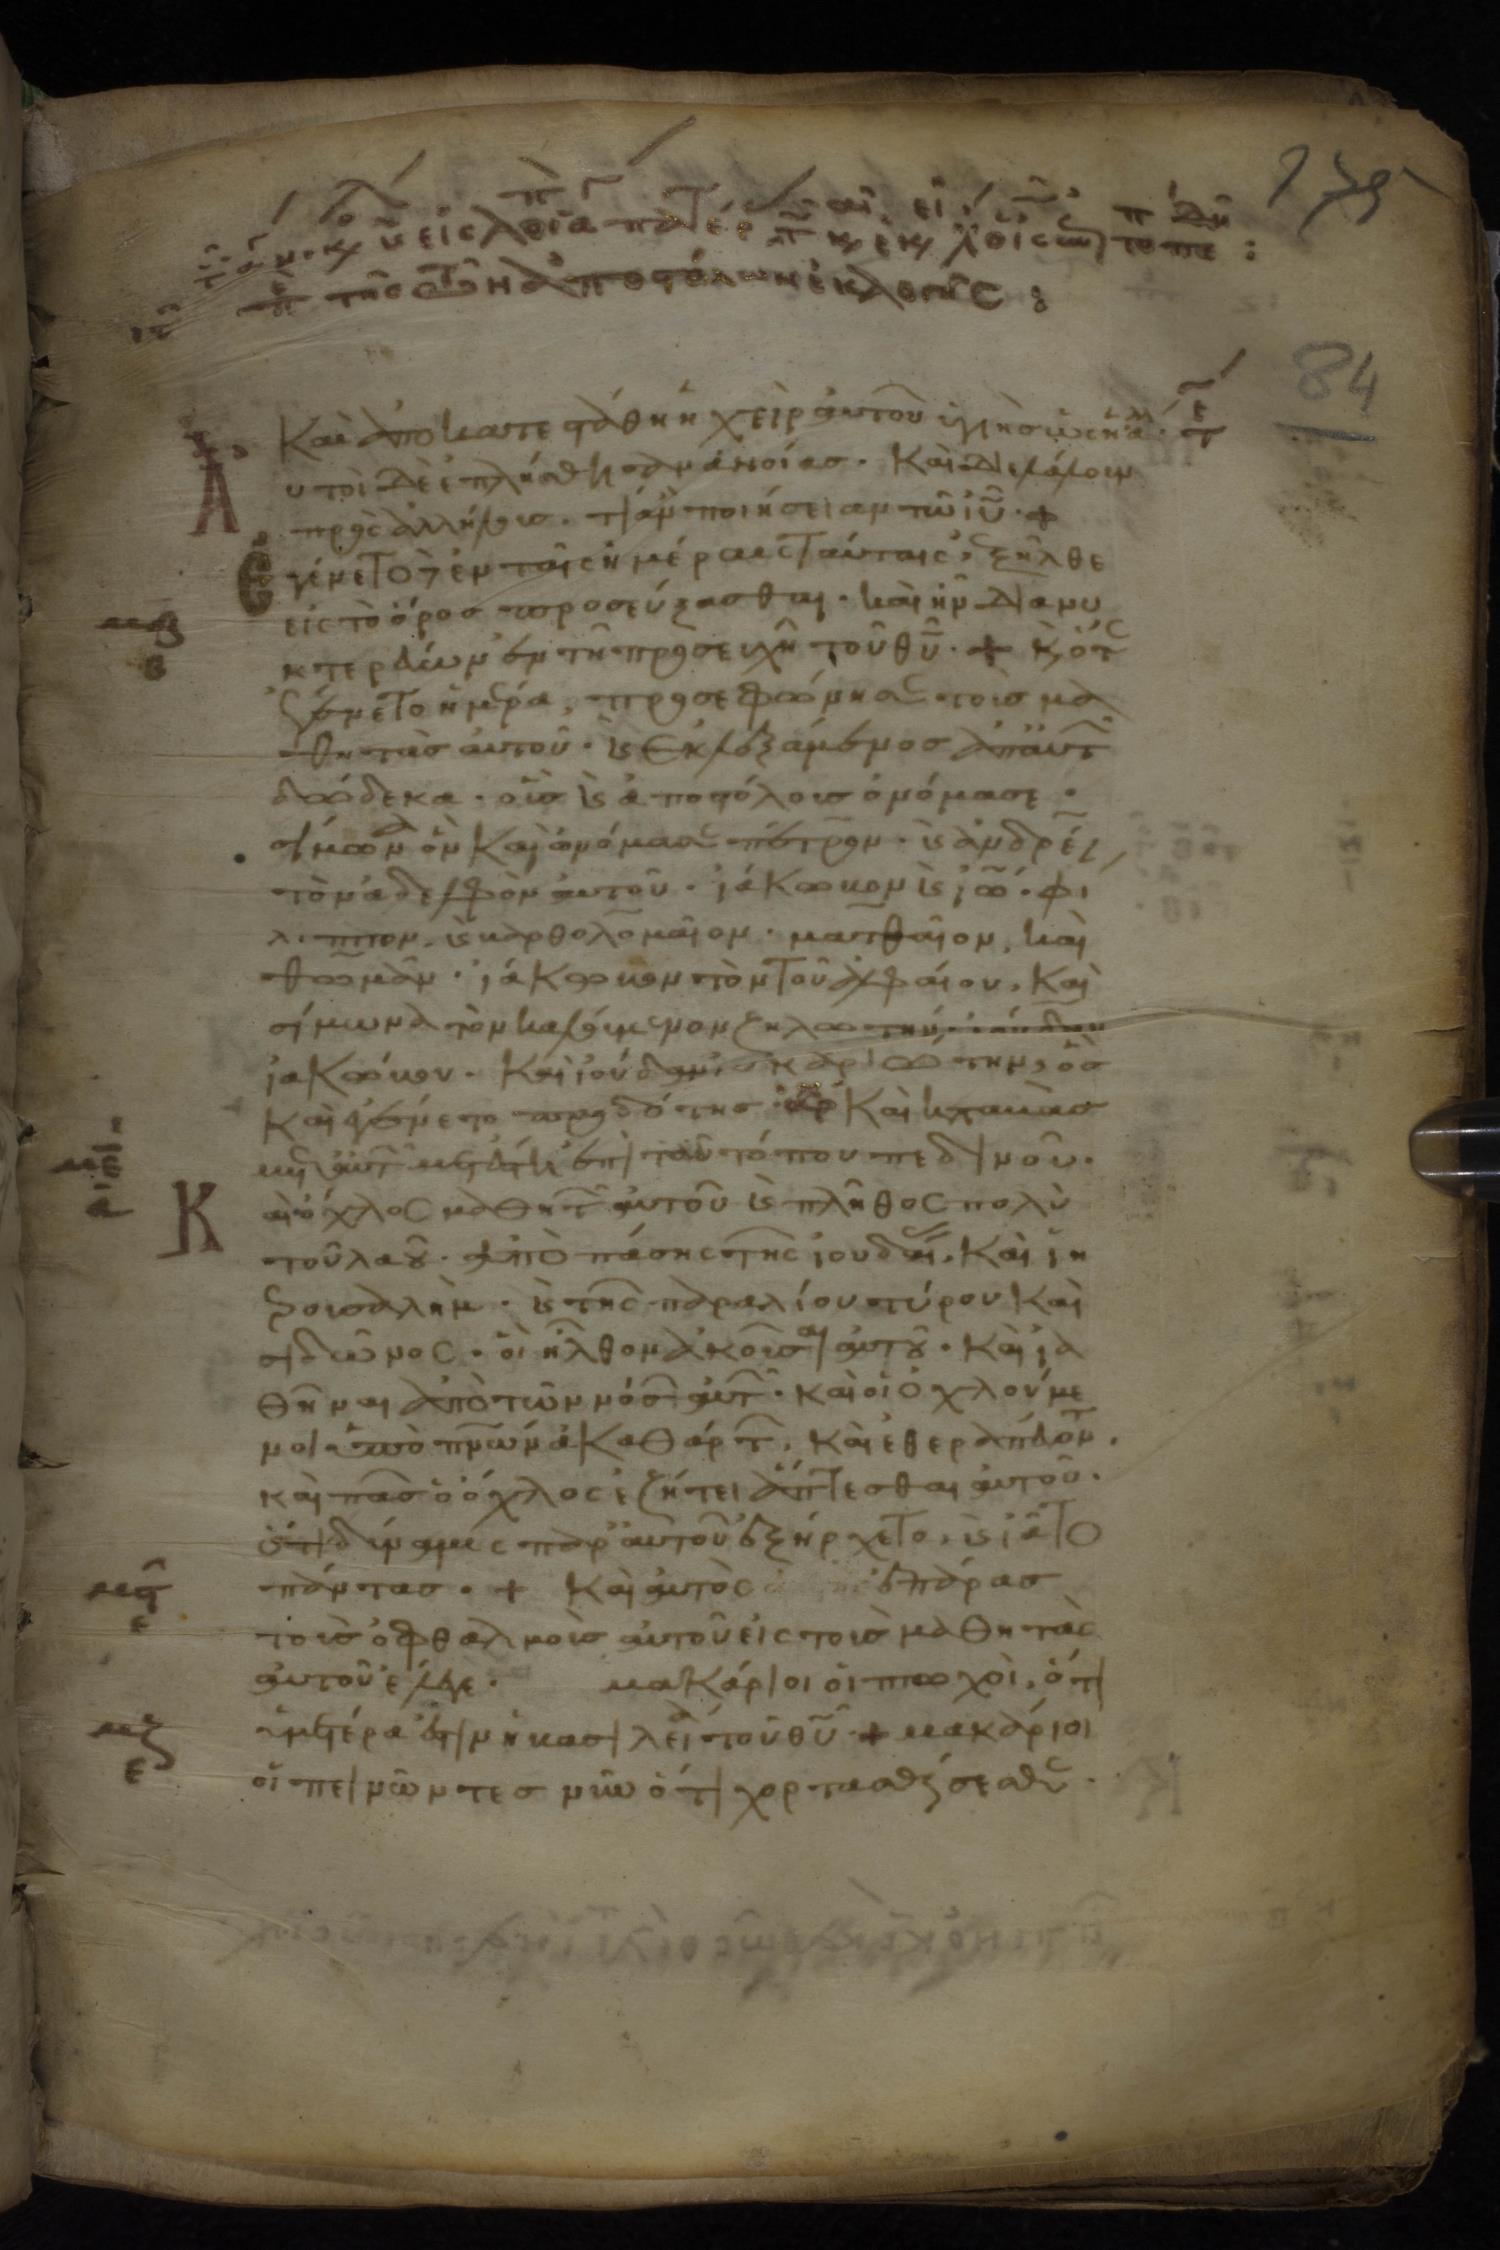 84
τῆς τῶν ἀποστόλων ἐκλογῆς :
Καὶ ἀποκατεστάθη ἡ χεὶρ αὐτοῦ ὑγιὴς ὡς ἡ ἄλλ
αυτοὶ δὲ ἐπλήσθησαν ἀνοίας · Καὶ διελάλουν
πρὸς ἀλλήλους · τί ἂν ποιήσειαν τῶ ιυ · +
Εγένετο δὲ ἐν ταῖς ἡμέραις ταύταις, ἐξῆλθε
εἰς τὸ ὄρος προσεύξασθαι · καὶ ἦν διανυ
κτερεύων ἐν τῆ προσευχῆ τοῦ θυ · + κ ὅτε
ἐγένετο ἡμέρα, προσεφώνησε τοὺς μα
θητὰς αὐτοῦ · κ ἐκλεξάμενος ἀπ αὐτ
δώδεκα · οὓς κ ἀποστόλους ὀνόμασε ·
σίμωνα ὃν Καὶ ὠνόμασε πέτρον · κ ἀνδρέα
τὸν ἀδελφὸν αὐτοῦ · ἰάκωβον κ ἰω · φί
λιππον, κ βαρθολομαῖον · ματθαῖον, καὶ
θωμᾶν · ἰάκωβον τὸν τοῦ ἀλφαίου, Καὶ
σίμωνα τὸν καλούμενον ζηλωτήν · ἰούδαν
ἰακώβου · Καὶ ἰούδαν ἰσκαριώτην, ὃς
Καὶ ἐγένετο προδότης · Καὶ καταβὰς
μετ αὐτ ἔστη ἐπὶ τοῦ τόπου πεδινοῦ ·
αὶ ὄχλος μαθητ αὐτοῦ κ πλῆθος πολὺ
τοῦ λαοῦ · ἀπὸ πάσης τῆς ἰουδαί, Καὶ ἱη
ρουσαλὴμ · κ τῆς παραλίου τύρου Καὶ
σιδῶνος · οἳ ἦλθον ἀκοῦσαι αὐτοῦ · Καὶ ἰα
θῆναι ἀπὸ τῶν νόσ αὐτ · Καὶ οἱ ὀχλούμε
νοι ὑπὸ πνων ἀκαθάρτ, Καὶ ἐθεραπεύοντ
καὶ πᾶς ὁ ὄχλος ἐζήτει ἅπτεσθαι αὐτοῦ ·
ὅτι δύναμις παρ αὐτοῦ ἐξήρχετο, κ ἰᾶτο
πάντας · + Καὶ αὐτὸς ἐπάρας
τοὺς ὀφθαλμοὺς αὐτοῦ εἰς τοὺς μαθητὰς
αὐτοῦ ἔλεγε · μακάριοι οἱ πτωχοὶ, ὅτι
ὑμετέρα ἐστὶν ἡ βασιλεία τοῦ θυ · + μακάριοι
οἱ πεινῶντες νῦν ὅτι χορτασθήσεσθε ·